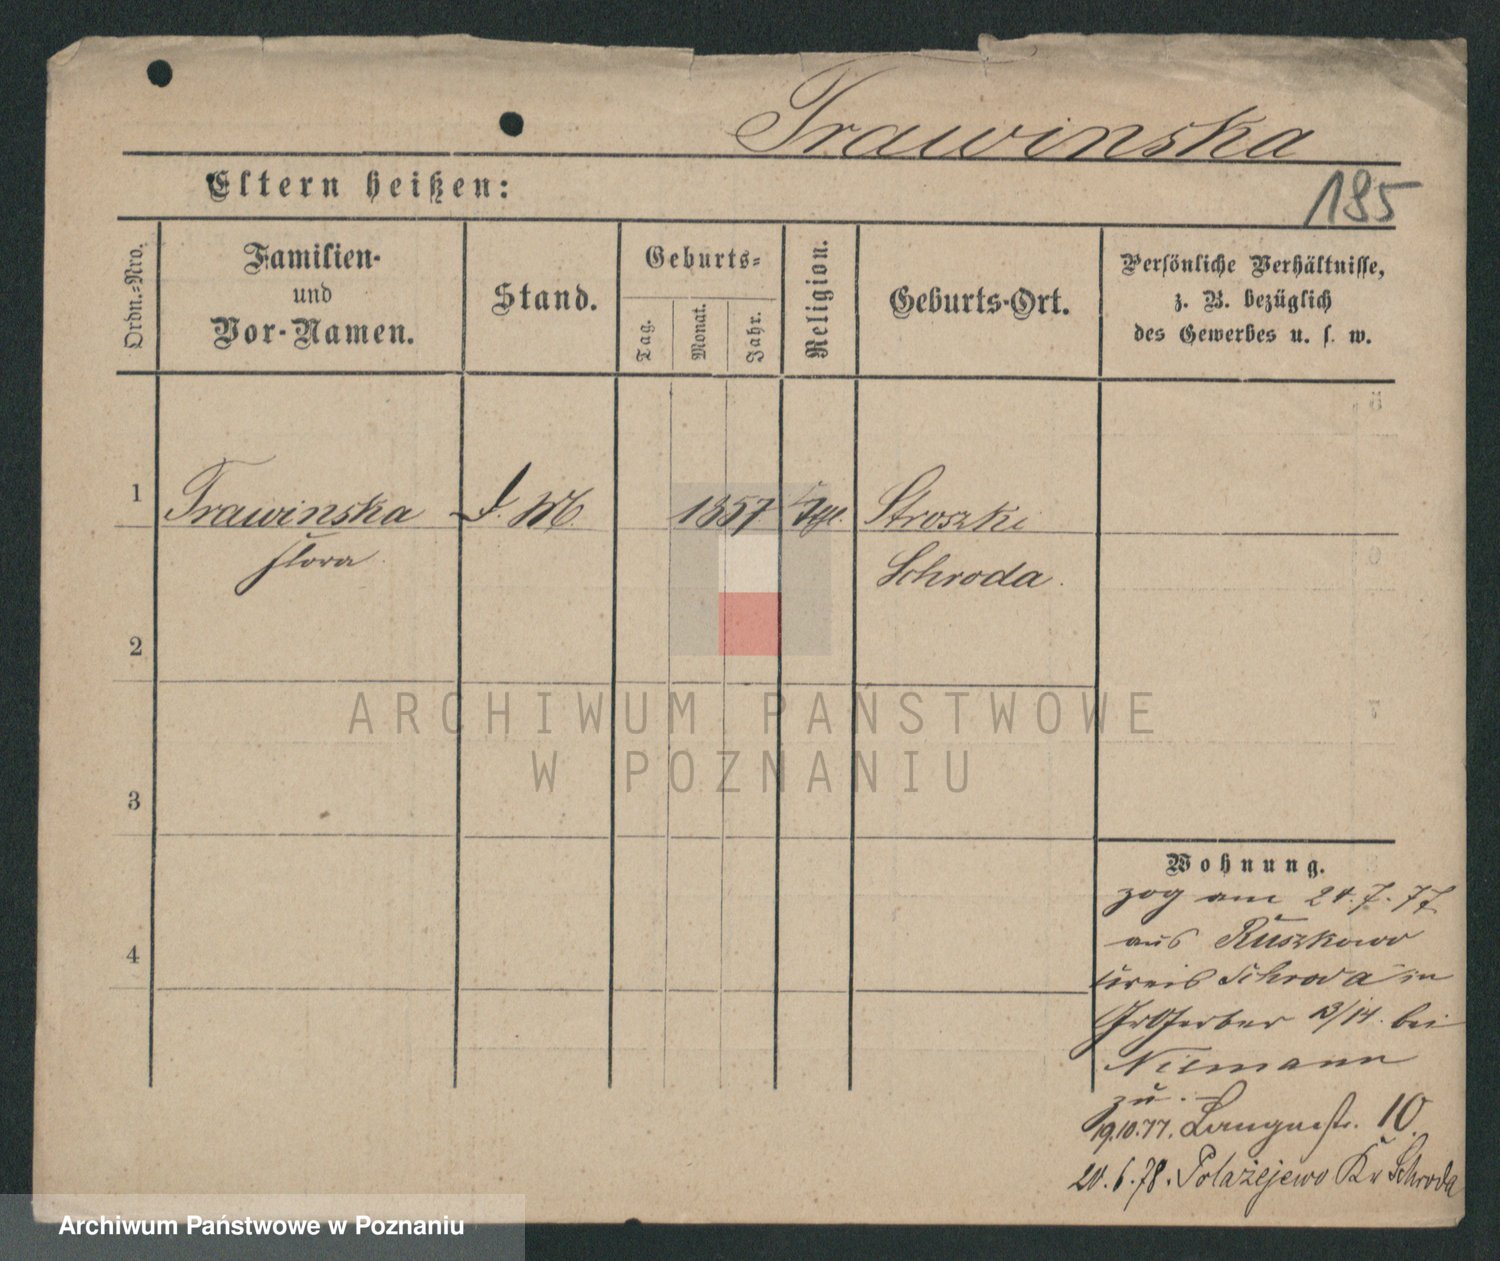 Trawinska
185
Eltern heißen:
Ordn.-Nro.
Familien-
und
Vor-Namen.
Stand.
Geburts-
Tag.
Monat.
Jahr.
Religion.
Geburts-Ort.
Persönliche Verhältnisse,
z. B. bezüglich
des Gewerbes u. s. w.
1
Trawinska
Flora
D. M.
1857
Stroszki
Schroda.
2
3
4
ARCHIWUM PAŃSTWOWE
W POZNANIU
Wohnung.
zog am 24.7.77
aus Ruszkowo
Kreis Schroda in
GrGerber 13/14. bei
Niemann
zu.
19.10.77. Langestr. 10.
20.6.78. Polażejewo Kr Schroda
Archiwum Państwowe w Poznaniu